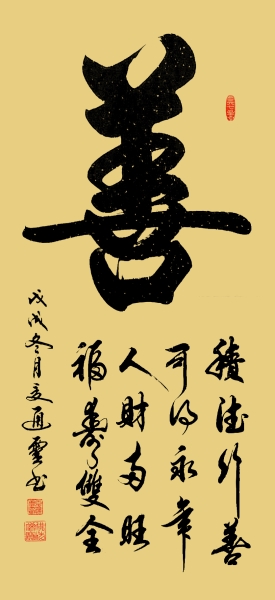 善
積德行善
可得永年
人財両旺
福壽雙全
戊戌冬月之通靈書